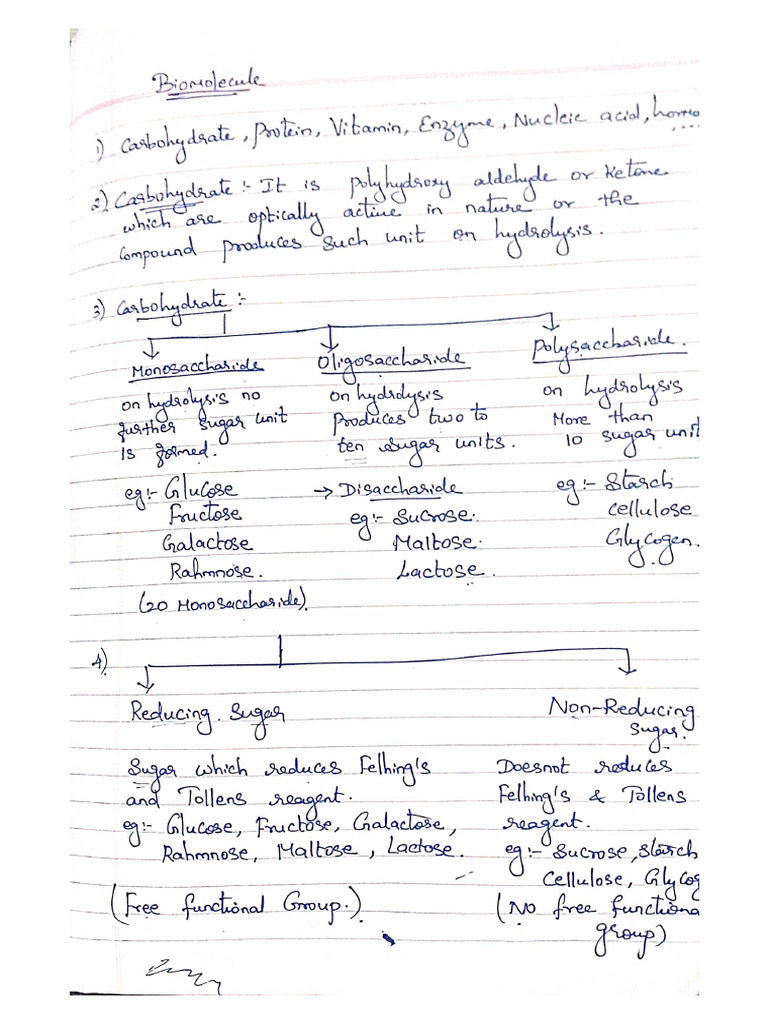 Biomolecule
1) Carbohydrate, Protein, Vitamin, Enzyme, Nucleic acid, homo
....
2) Carbohydrate :- It is polyhydroxy aldehyde or ketone
which are optically active in nature or the
compound produces such unit on hydrolysis.
3) Carbohydrate :-
Monosaccharide
on hydrolysis no
further sugar unit
is formed.
eg:- Glucose
Fructose
Galactose
Rahmnose.
(20 Monosaccharide).
Oligosaccharide
on hydrolysis
Produces two to
ten sugar units.
→ Disaccharide
eg:- Sucrose.
Maltose.
Lactose.
Polysaccharide.
on hydrolysis
More than
10 sugar unit
eg:- Starch
cellulose
Glycogen.
4).
Reducing Sugar
Sugar which reduces Felhing's
and Tollens reagent.
eg:- Glucose, Fructose, Galactose,
Rahmnose, Maltose, Lactose.
(Free functional Group.)
Non-Reducing
Sugar.
Doesnot reduces
Felhing's & Tollens
reagent.
eg:- Sucrose, Starch
Cellulose, Glycog
(No free functiona
group)